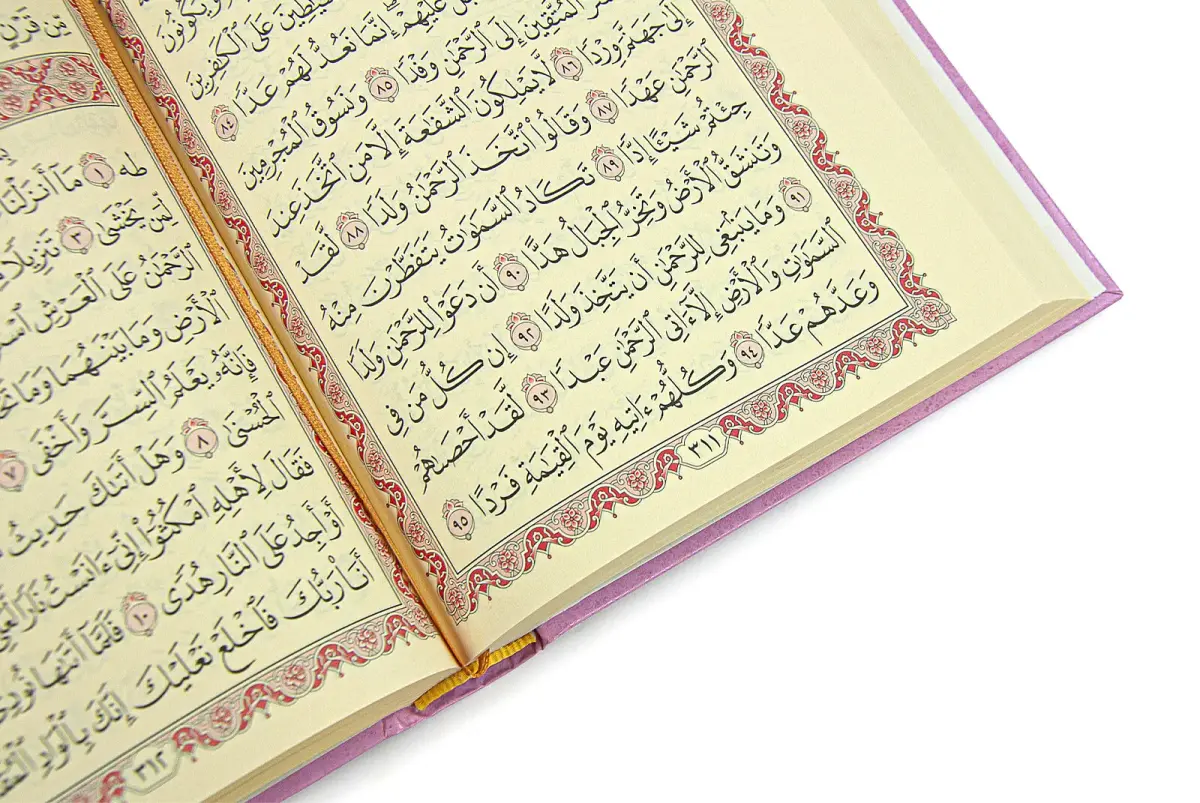 وَيَكُونُونَ
ٱلشَّيَٰطِينَ عَلَى ٱلْكَٰفِرِينَ
عَلَيْهِمْ إِنَّمَا نَعُدُّ لَهُمْ عَدًّا ٨٤
ٱلْمُتَّقِينَ إِلَى ٱلرَّحْمَٰنِ وَفْدًا ٨٥ وَنَسُوقُ ٱلْمُجْرِمِينَ
إِلَىٰ جَهَنَّمَ وِرْدًا ٨٦ لَّا يَمْلِكُونَ ٱلشَّفَٰعَةَ إِلَّا مَنِ ٱتَّخَذَ عِندَ
ٱلرَّحْمَٰنِ عَهْدًا ٨٧ وَقَالُوا۟ ٱتَّخَذَ ٱلرَّحْمَٰنُ وَلَدًا ٨٨ لَّقَدْ
جِئْتُمْ شَيْـًٔا إِدًّا ٨٩ تَكَادُ ٱلسَّمَٰوَٰتُ يَتَفَطَّرْنَ مِنْهُ
وَتَنشَقُّ ٱلْأَرْضُ وَتَخِرُّ ٱلْجِبَالُ هَدًّا ٩٠ أَن دَعَوْا۟ لِلرَّحْمَٰنِ وَلَدًا
٩١ وَمَا يَنۢبَغِى لِلرَّحْمَٰنِ أَن يَتَّخِذَ وَلَدًا ٩٢ إِن كُلُّ مَن فِى
ٱلسَّمَٰوَٰتِ وَٱلْأَرْضِ إِلَّآ ءَاتِى ٱلرَّحْمَٰنِ عَبْدًا ٩٣ لَّقَدْ أَحْصَىٰهُمْ
وَعَدَّهُمْ عَدًّا ٩٤ وَكُلُّهُمْ ءَاتِيهِ يَوْمَ ٱلْقِيَٰمَةِ فَرْدًا ٩٥
٣١١
مِّن قَرْنٍ
طه ١ مَآ أَنزَلْنَا
لِّمَن يَخْشَىٰ ٣ تَنزِيلًا
ٱلرَّحْمَٰنُ عَلَى ٱلْعَرْشِ
ٱلْأَرْضِ وَمَا بَيْنَهُمَا وَمَا
فَإِنَّهُۥ يَعْلَمُ ٱلسِّرَّ وَأَخْفَى ٧
ٱلْحُسْنَىٰ ٨ وَهَلْ أَتَىٰكَ حَدِيثُ
فَقَالَ لِأَهْلِهِ ٱمْكُثُوٓا۟ إِنِّىٓ ءَانَسْتُ نَارًا لَّعَلِّىٓ
أَوْ أَجِدُ عَلَى ٱلنَّارِ هُدًى ١٠ فَلَمَّآ أَتَىٰهَا نُودِىَ
أَنَا۠ رَبُّكَ فَٱخْلَعْ نَعْلَيْكَ إِنَّكَ بِٱلْوَادِ
٣١٢